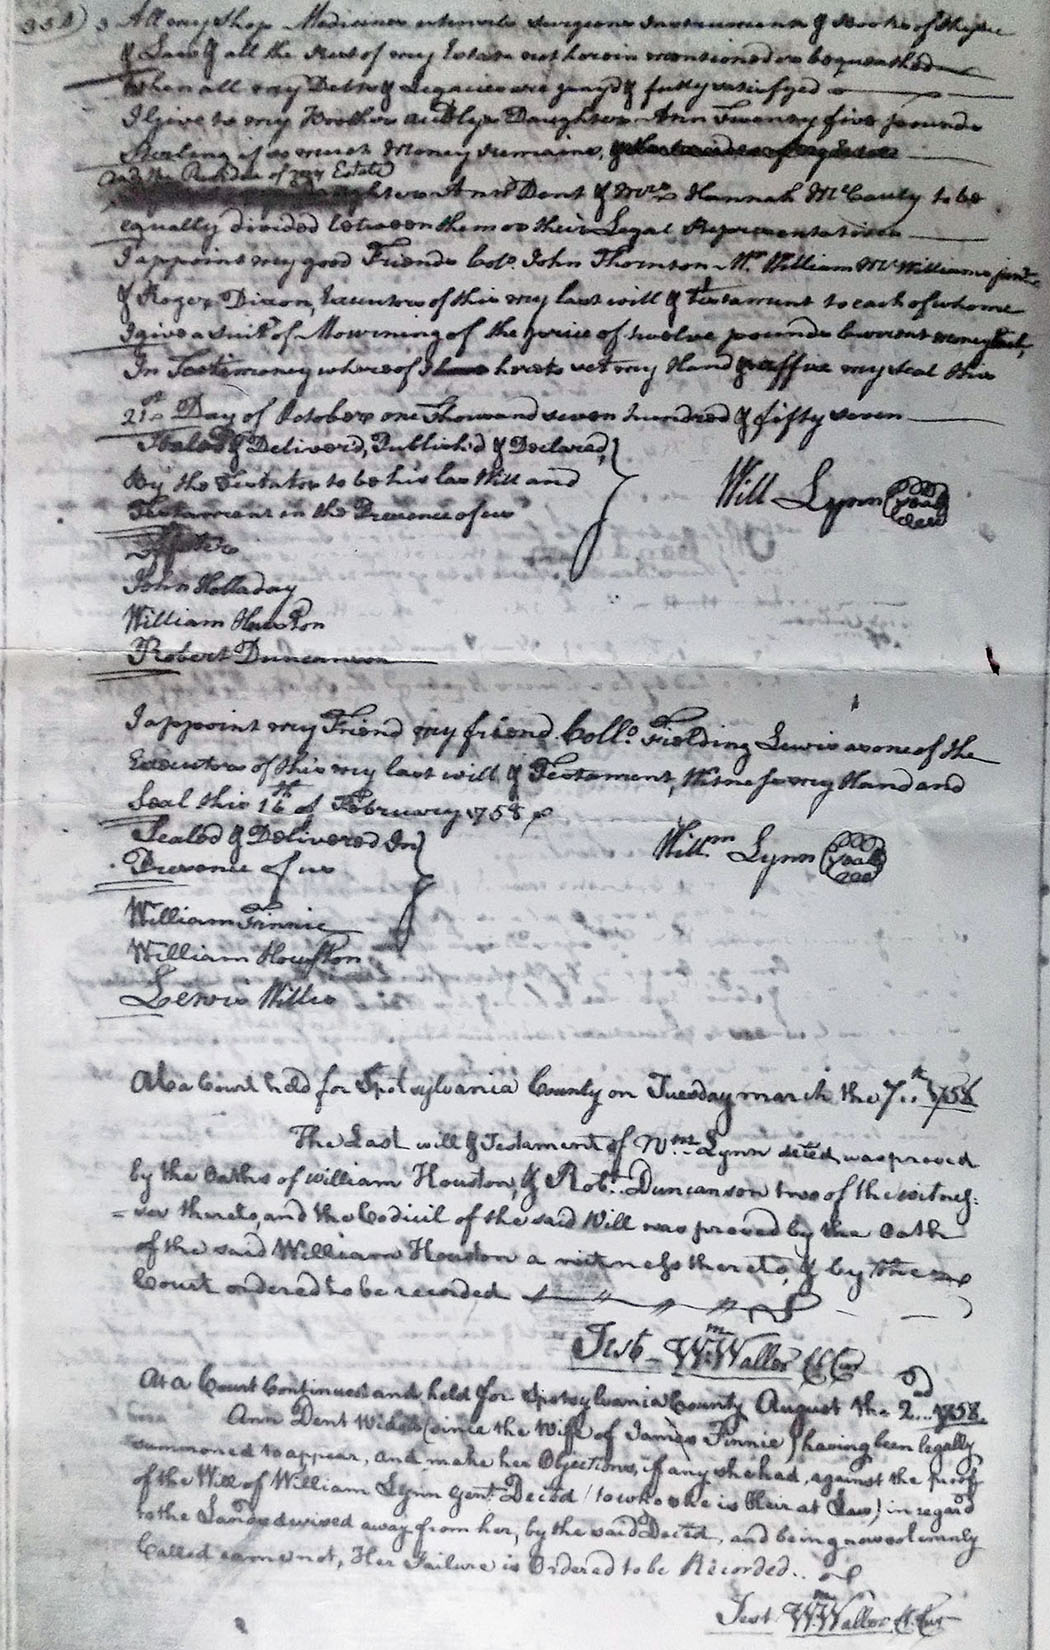 All my Shop Medicines utensils Surgeons Instruments & Books of
& Law & all the Rest of my Estate not herein mentioned or bequeathed
When all my Debts & Legacies are payd & fully satisfyed
I Give to my Brother Audlys Daughter Ann Twenty five pounds
Sterling if so much Money Remains,
and the Residue of my Estate
Daughters Ann Dent & Mrs. Hannah McCauly to be
equally divided between them or their Legal Representatives
I appoint my good Friends Colo. John Thornton Mr. William McWilliams junr.
& Roger Dixon, Executors of this my last will & testament to each of whome
I give a Suit of Mourning of the price of twelve pounds Current money
In Testimoney whereof I have hereto set my Hand & affixe my seal this
21st Day of October one Thousand seven hundred & fifty seven
Sealed & Deliverd, Publish'd & Declared,
By the Testator to be his las Will and
Testament in the Presence of us
Will Lynn
John Holladay
William Houston
Robert Duncanson
I appoint my Friend my friend Collo. Fielding Lewis as one of the
Executors of this my last will & Testament, Witness my Hand and
Seal this 16th of February 1758
Sealed & Delivered In
Presence of us
Willm Lynn Seal
William Finnie
William Houston
Lewis Willis
At a Court held for Spotsylvania County on Tuesday march the 7..th 1758
The Last will & Testament of Wm. Lynn deced was proved
by the oaths of William Houston, & Robt. Duncanson two of the witnes:
= ses thereto, and the Codicil of the said Will was proved by the oath
of the said William Houston a witness thereto, & by the
Court ordered to be recorded
Test Wm Waller Cl Cur
At a Court Continued and held for Spotsylvania County August the 2nd 1758.
Ann Dent Widow (since the Wife of James Finnie) having been legally
summoned to appear, and make her Objections, if any she had, against the proof
of the Will of William Lynn Gent. Deced (to who she is Heir at Law) in regard
to the Lands devised away from her, by the said Deced, and being now solemnly
Called came not, Her Failure is Ordered to be Recorded..
Test Wm Waller Cl. Cur